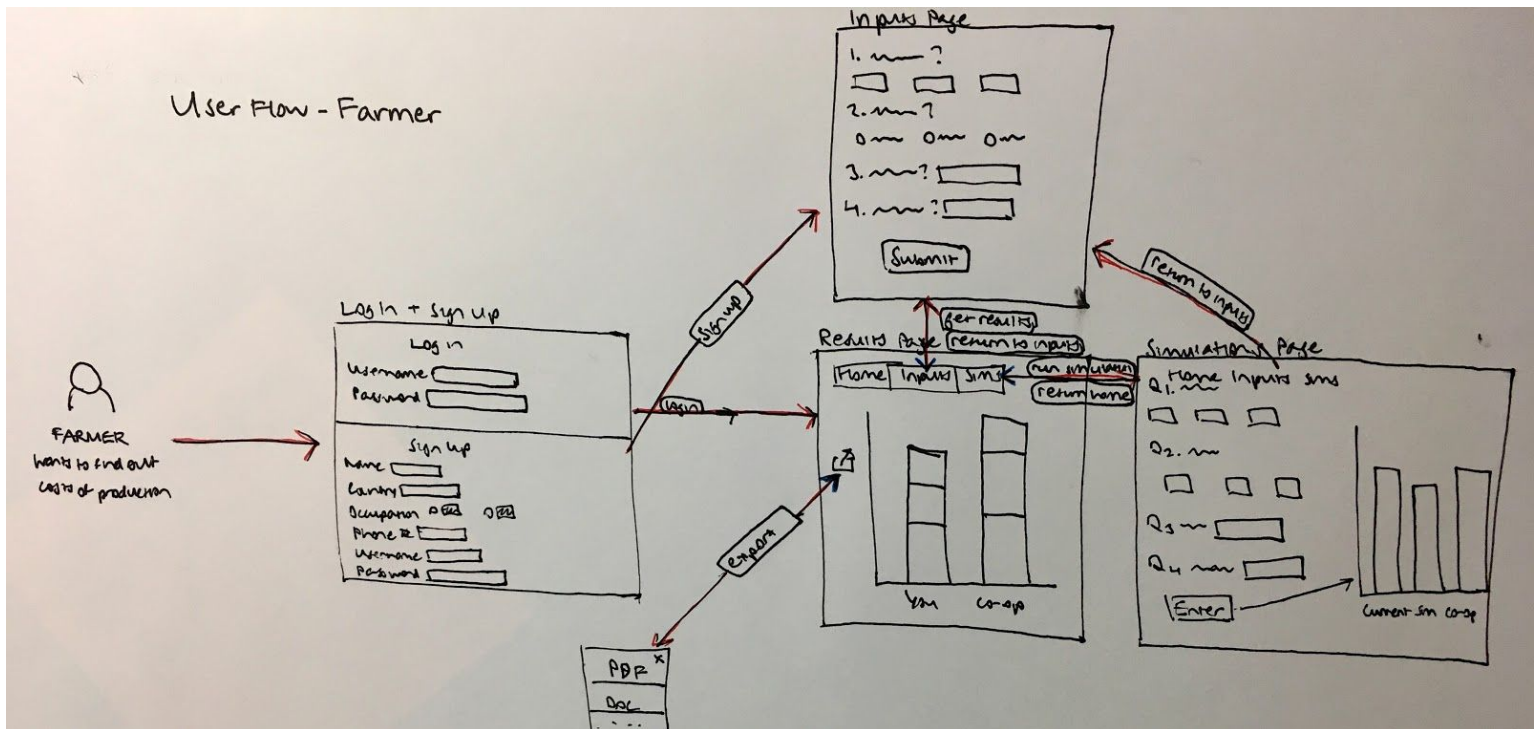 User Flow - Farmer
FARMER
wants to find out
costs of production
Login + Sign up
Log in
Username
Password
Sign up
Name
Country
Occupation
Phone #
Username
Password
Sign up
Login
Inputs Page
1. ?
2. ?
3. ?
4. ?
Submit
get results
return to inputs
Results Page
Home Inputs Sims
You co-op
export
PDF x
DOC
run simulation
return home
return to inputs
Simulations Page
Home Inputs sims
Q1.
Q2.
Q3
Q4
Enter
Current sim co-op